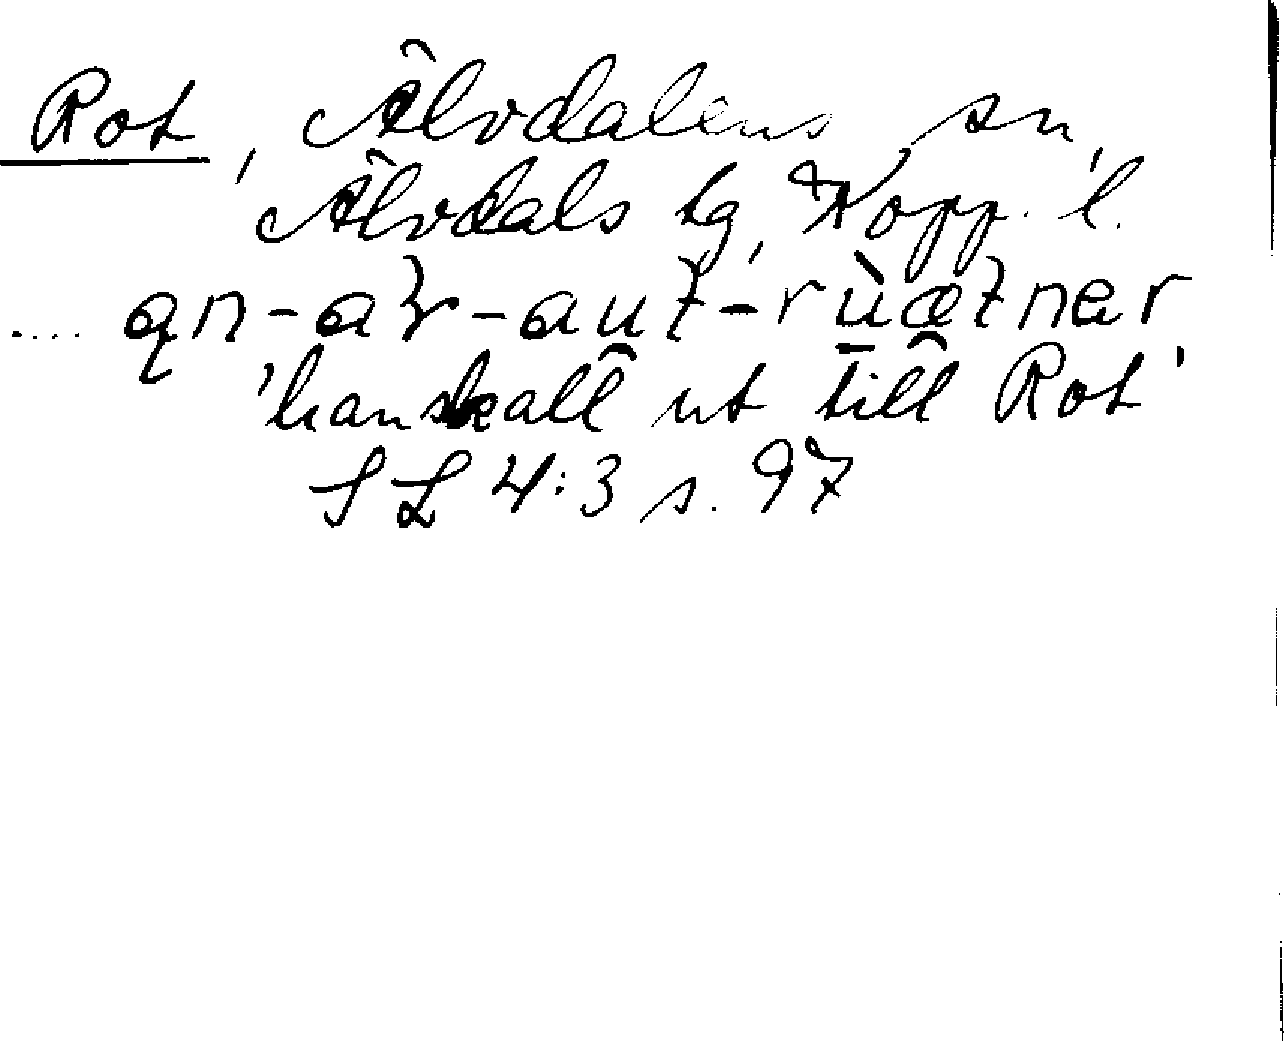 Rot, Älvdalens sn,
Älvdals tg, Kopp. l.
.... qn-
'han skall ut till Rot'
SL 4:3 s. 97